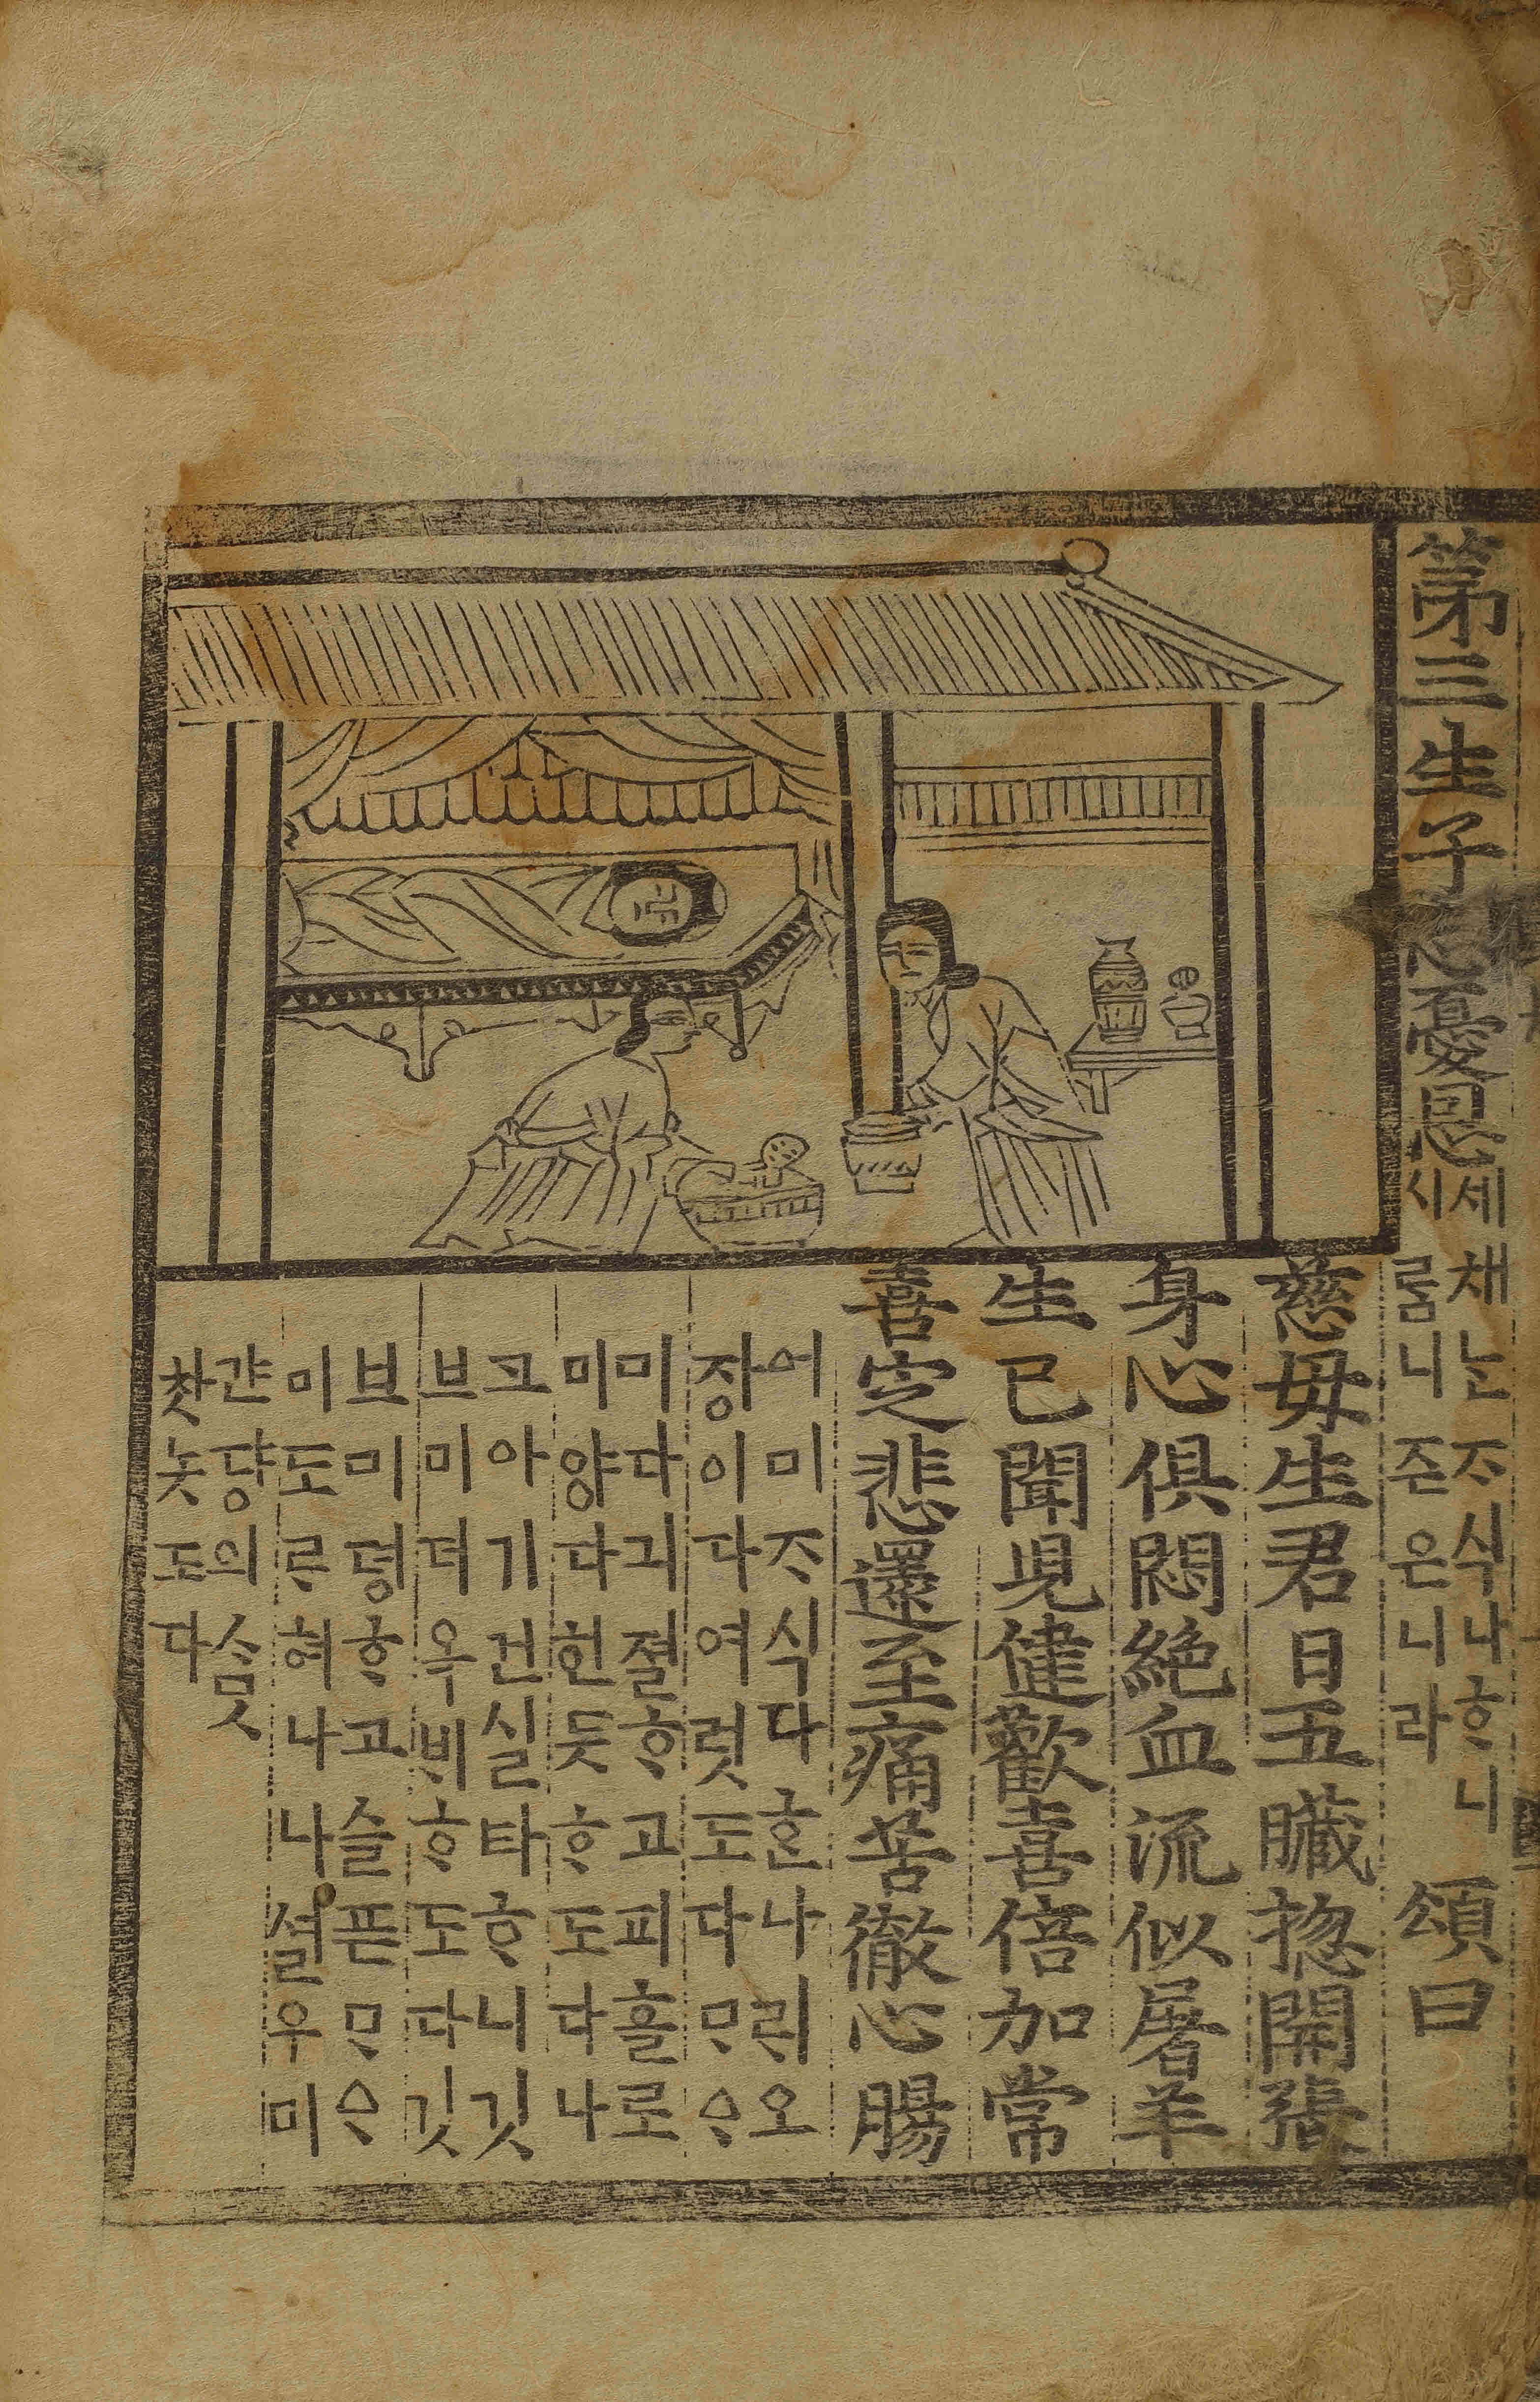 第三生子忘憂恩
세채ᄂᆞᆫᄌᆞ식나ᄒᆞ니
시롬니존은니라
頌曰
慈母生君日五臟揔開張
身心俱悶絶血流似屠羊
生已聞兒健歡喜倍加常
喜定悲還至痛苦徹心腸
어미ᄌᆞ식다ᄒᆞᆫ나ᄅᆡ오
장이다여럿도다ᄆᆞᄋᆞ
미다긔졀ᄒᆞ고피흘로
미양다헌듯ᄒᆞ도다나
크아기건실타ᄒᆞ니깃
브미뎌옥ᄇᆡᄒᆞ도다깃
브미뎡ᄒᆞ고슬픈ᄆᆞᄋᆞ
미도ᄅᆞ혀나나셜우미
간댱의ᄉᆞᇝ
찻놋도다